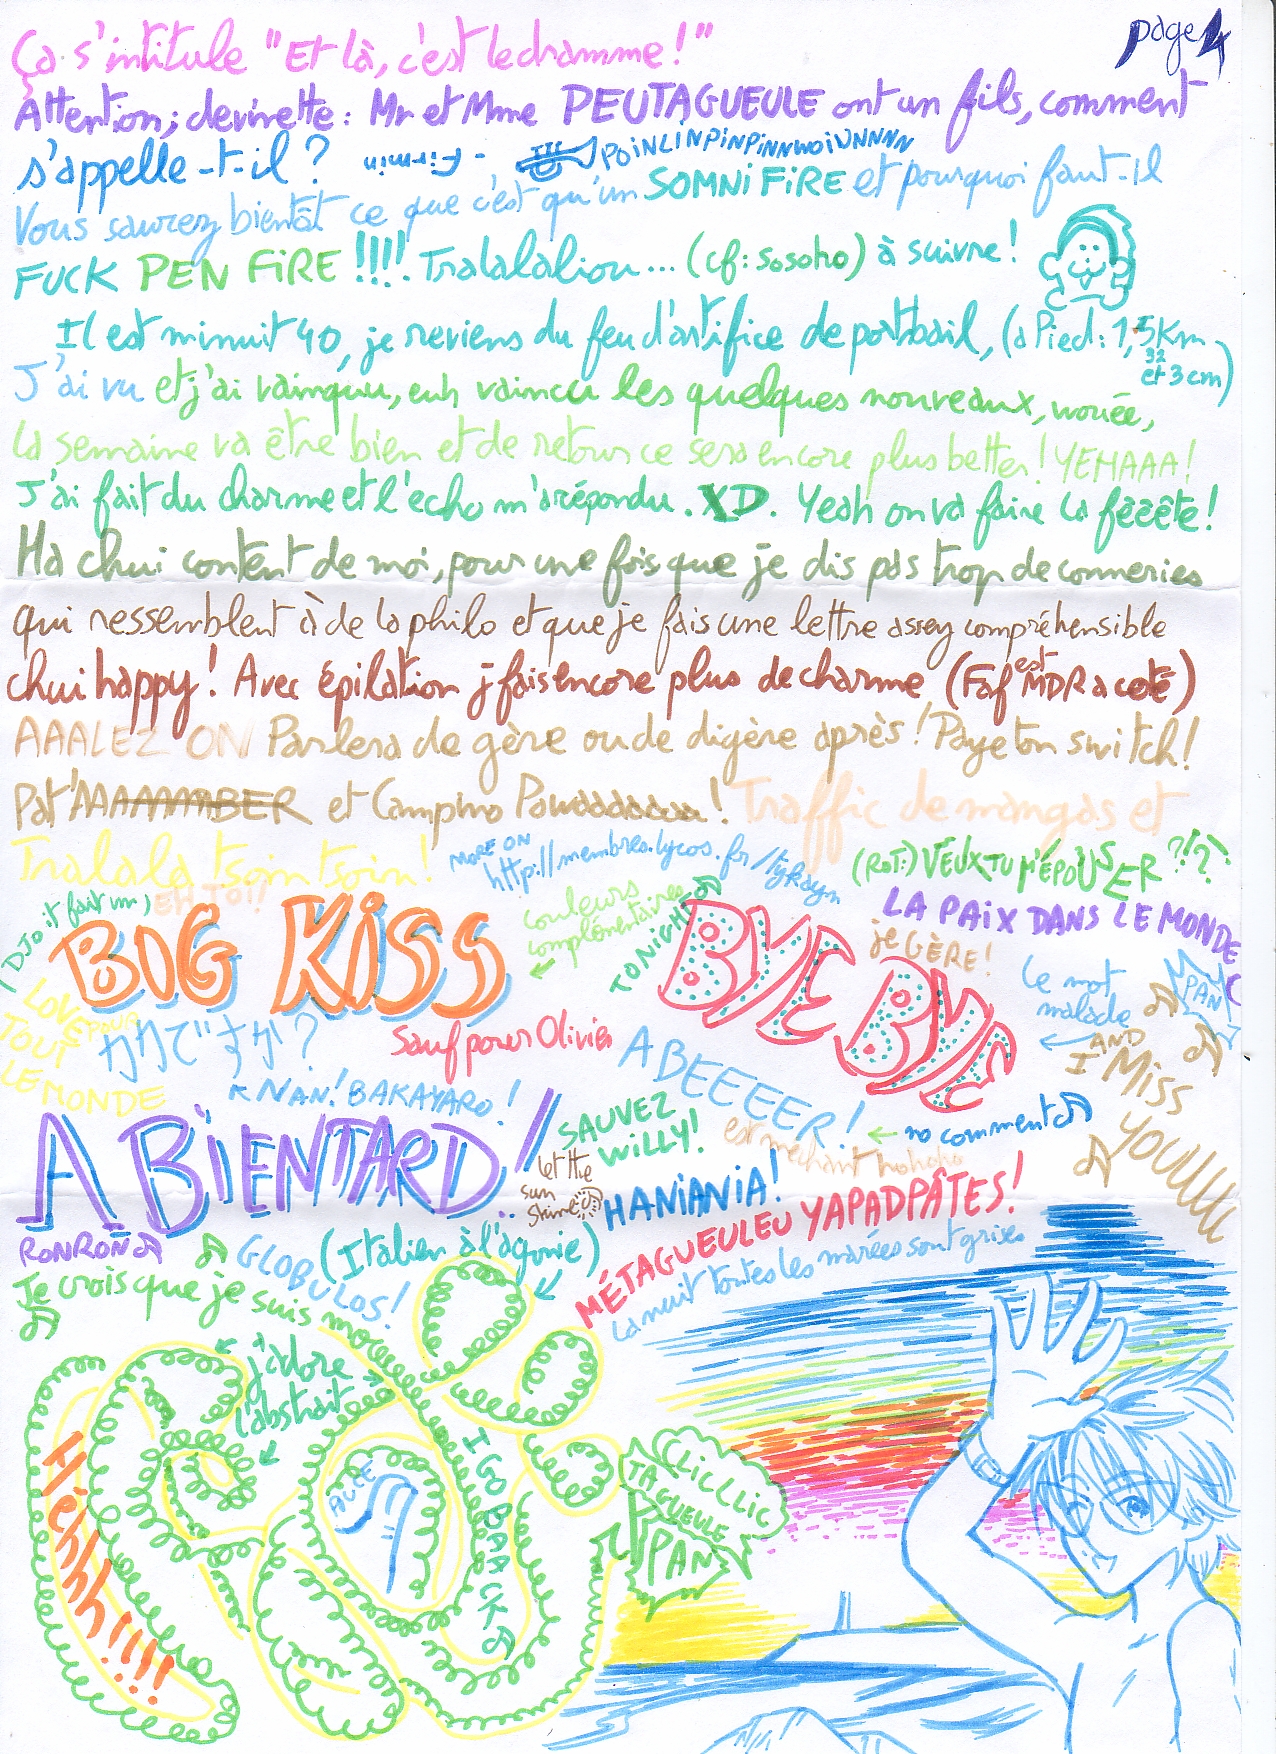 page 4
Ça s'intitule "Et là, c'est le dramme !"
Attention ; devinette : Mr et Mme PEUTAGUEULE ont un fils, comment
s'appelle-t-il ? - Firmin. POINLINPINPINNWOIUNNNN
Vous saurez bientôt ce que c'est qu'un SOMNI FiRE et pourquoi faut-il
FUCK PEN FiRE !!!!. Tralalaliou... (cf: sosoho) à suivre !
Il est minuit 40, je reviens du feu d'artifice de portbail, (a Pied : 1,5Km
32
et 3 cm)
J'ai vu et j'ai vainquu, euh vaincu les quelques nouveaux, wouée,
la semaine va être bien et de retour ce sera encore plus better ! YEHAAA !
J'ai fait du charme et l'écho m'a répondu. XD. Yeah on va faire la fêêête !
Ha chui content de moi, pour une fois que je dis pas trop de conneries
qui ressemblent à de la philo et que je fais une lettre assez compréhensible
chui happy ! Avec épilation j'fais encore plus de charme (Faf est MDR a coté)
AAALEZ ON Parlera de gère ou de digère après ! Paye ton switch !
Pat'AAAMMMBER et Campino Powaaaaaa ! Traffic de mangas et
Tralala tsoin tsoin !
MORE ON
http://membres.lycos.fr/tykayn
(ROT:) VEUX TU M'ÉPOUSER ?!?!
DJO it fait un,
EH TOI !
BIG KISS
couleurs
complémentaires
TONIGHT
BYE BYE
LA PAIX DANS LE MONDE
je GÈRE !
le mot
malade
PAN
LOVE POUR
TOUT
LE MONDE
カカですか?
Sauf pour Olivier
NAN ! BAKAYARO !
ABEEEER !
est méchant hohoho
no comment
AND
I Miss
YOUUUU
A BiENTARD !
SAUVEZ
WiLLY !
let the
sun
shine
HANIANIA !
MÉTAGUEULEU YAPADPÂTES !
la nuit toutes les marées sont grises
RONRON
GLOBULOS !
(Italien à l'agonie)
Je crois que je suis mo
j'adore
l'abstrait
Hèhhhh !!!!
IGO BAACK
CLICLLIC
TA GUEULE
PAN